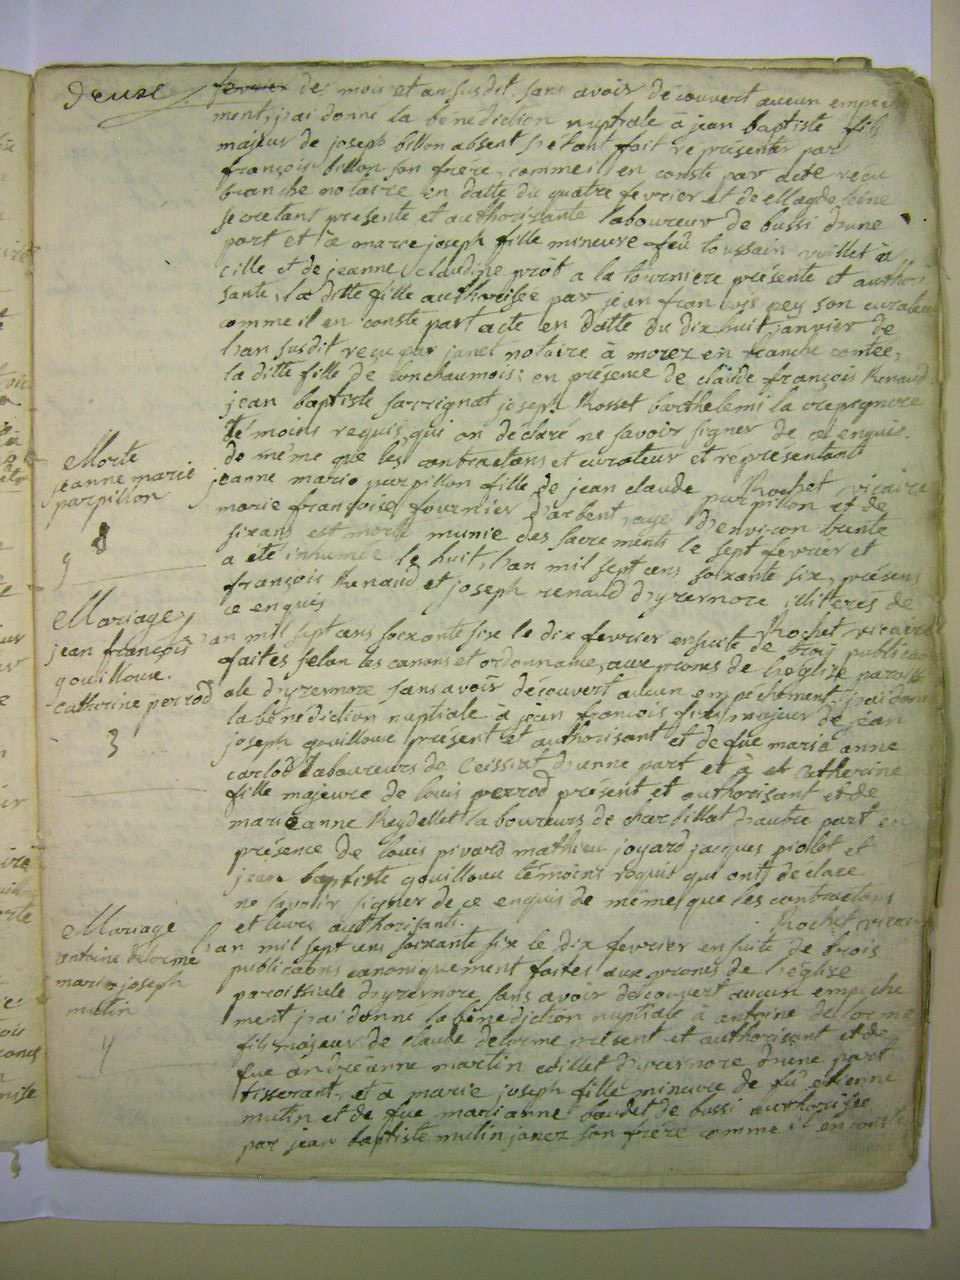 deuxe
fevrier des mois et an susdit sans avoir découvert aucun empeche
ment, j'ai donné la bénédiction nuptiale à jean baptiste fils
majeur de joseph billon absent s'étant fait représenter par
françois billon son frère, comme il en conste par acte reçu
branche notaire en datte du quatre fevrier et de
secretant presente et authorisante laboureur de bussi d'une
part et à marie joseph fille mineure feu toussain vuillet
cille et de jeanne claudine prôt a la tourniere présente et authori
sante, la ditte fille authorisée par jean françois pey son curateur
comme il en conste part acte en datte du dix huit janvier de
l'an susdit reçu par janet notaire à morez en franche comtée,
la ditte fille de lonchaumois; en présence de claude françois Renaud
jean baptiste sarrignat joseph Rosset barthelemi la
témoins requis qui on déclaré ne savoir signer de ce enquis.
de même que les contractans et curateur et representant
Rochet vicaire
Morte
jeanne marie
parpillon
8
9
jeanne marie parpillon fille de jean claude parpillon et de
marie françoise fournier d'arbent agé d'environ trente
six ans est morte munie des sacrements le sept fevrier et
a été inhumée le huit, l'an mil sept cens soixante six, présens
françois Renaud et joseph renaud d'yzernore illiterés de
ce enquis
Rochet vicaire
Mariage
jean françois
gouilloux.
catherine perrod
3
l'an mil sept cens soixante six le dix fevrier ensuite de trois publicaons
faites selon les canons et ordonnances, aux prones de l'eglize paroissi
ale d'yzernore sans avoir découvert aucun empechement, j'ai donné
la bénédiction nuptiale à jean françois fils majeur de jean
joseph gouilloux présent et authorisant et de füe marie anne
carlod laboureurs de Ceissiat d'unne part et à et Catherine
fille majeure de louis perrod présent et authorisant et de
marie anne Reydellet laboureurs de charbillat d'autre part en
présence de louis pivard mathieu joyard jacques piollet et
jean baptiste gouilloux témoins requis qui onts déclaré
ne savoir signer de ce enquis de même que les contractans
et leurs authorisants.
Rochet vicaire
Mariage
antoine delorme
marie joseph
mutin
4
l'an mil sept cens soixante six le dix fevrier en suite de trois
publicaons canoniquement faites aux prones de l'église
paroissiale d'yzernore, sans avoir découvert aucun empeche
ment j'ai donné la bénédiction nuptiale à antoine delorme
fils majeur de claude delorme présent et authorisant et de
füe andréanne martin d'yzernore d'une part
tisserant, et à marie joseph fille mineure de fu etienne
mutin et de füe marianne baudet de bussi authorisée
par jean baptiste mutin janez son frère comme il en conste